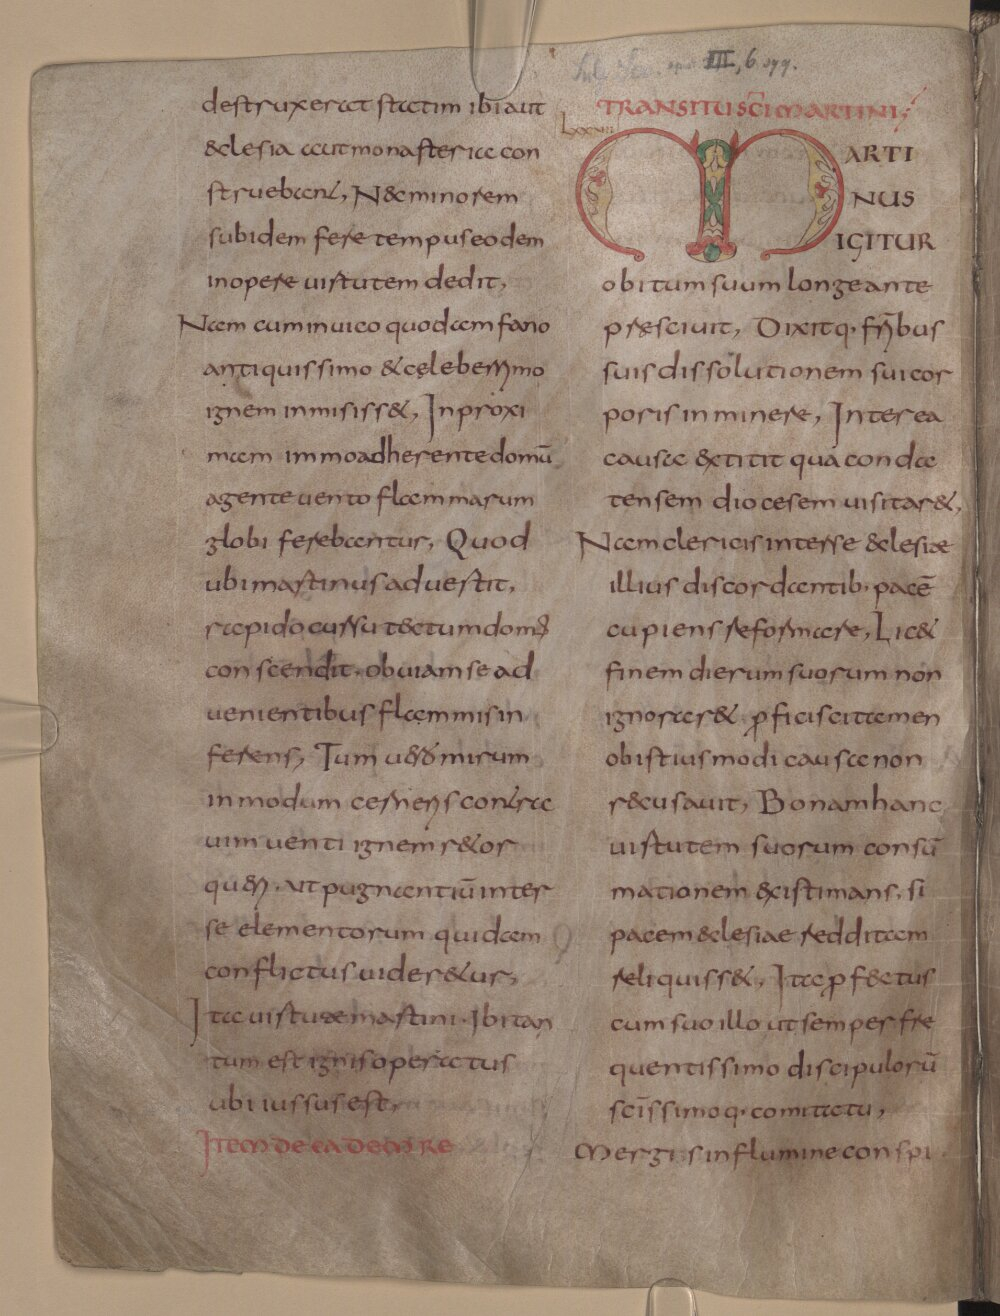 destruxerat statim ibi aut
&clesia aut monasteria con
struebant, N& minorem
sub idem fere tempus eodem
in opere uirtutem dedit,
Nam cum in uico quodam fano
antiquissimo & celeberrimo
ignem inmisiss&, In proxi
mam immo adherente domū
agente uento flammarum
globi ferebantur, Quod
ubi martinus aduertit,
rapido cursu t&ctum dom;
conscendit· obuiam se ad
uenientibus flammis in
ferens, Tum u&o mirum
in modum cerneres contra
uim uenti ignem r&or
qu&ri· ut pugnantiū inter
se elementorum quidam
conflictus uider&ur,
Ita uirtute martini· Ibi tan
tum est ignis operatus
ubi iussus est,
Item de eadem re
III, 6.
TRANSITUS SC̄I MARTINI;
MARTI
NUS
IGITUR
obitum suum longe ante
præsciuit, Dixitq· fr̄ibus
suis dissolutionem sui cor
poris inminere, Interea
causa &xtitit qua conda
tensem diocesem uisitar&,
Nam clericis inter se &clesiæ
illius discordantib· pacē
cupiens reformare, Lic&
finem dierum suorum non
ignorar&· ꝓficisci tamen
ob istiusmodi causa non
r&cusauit, Bonam hanc
uirtutem suorum consū
mationem &xistimans, si
pacem &clesiae redditam
reliquiss&, Ita ꝓf&ctus
cum suo illo ut semper fre
quentissimo discipulorū
sc̄issimoq· comitatu,
Mergis in flumine conspi